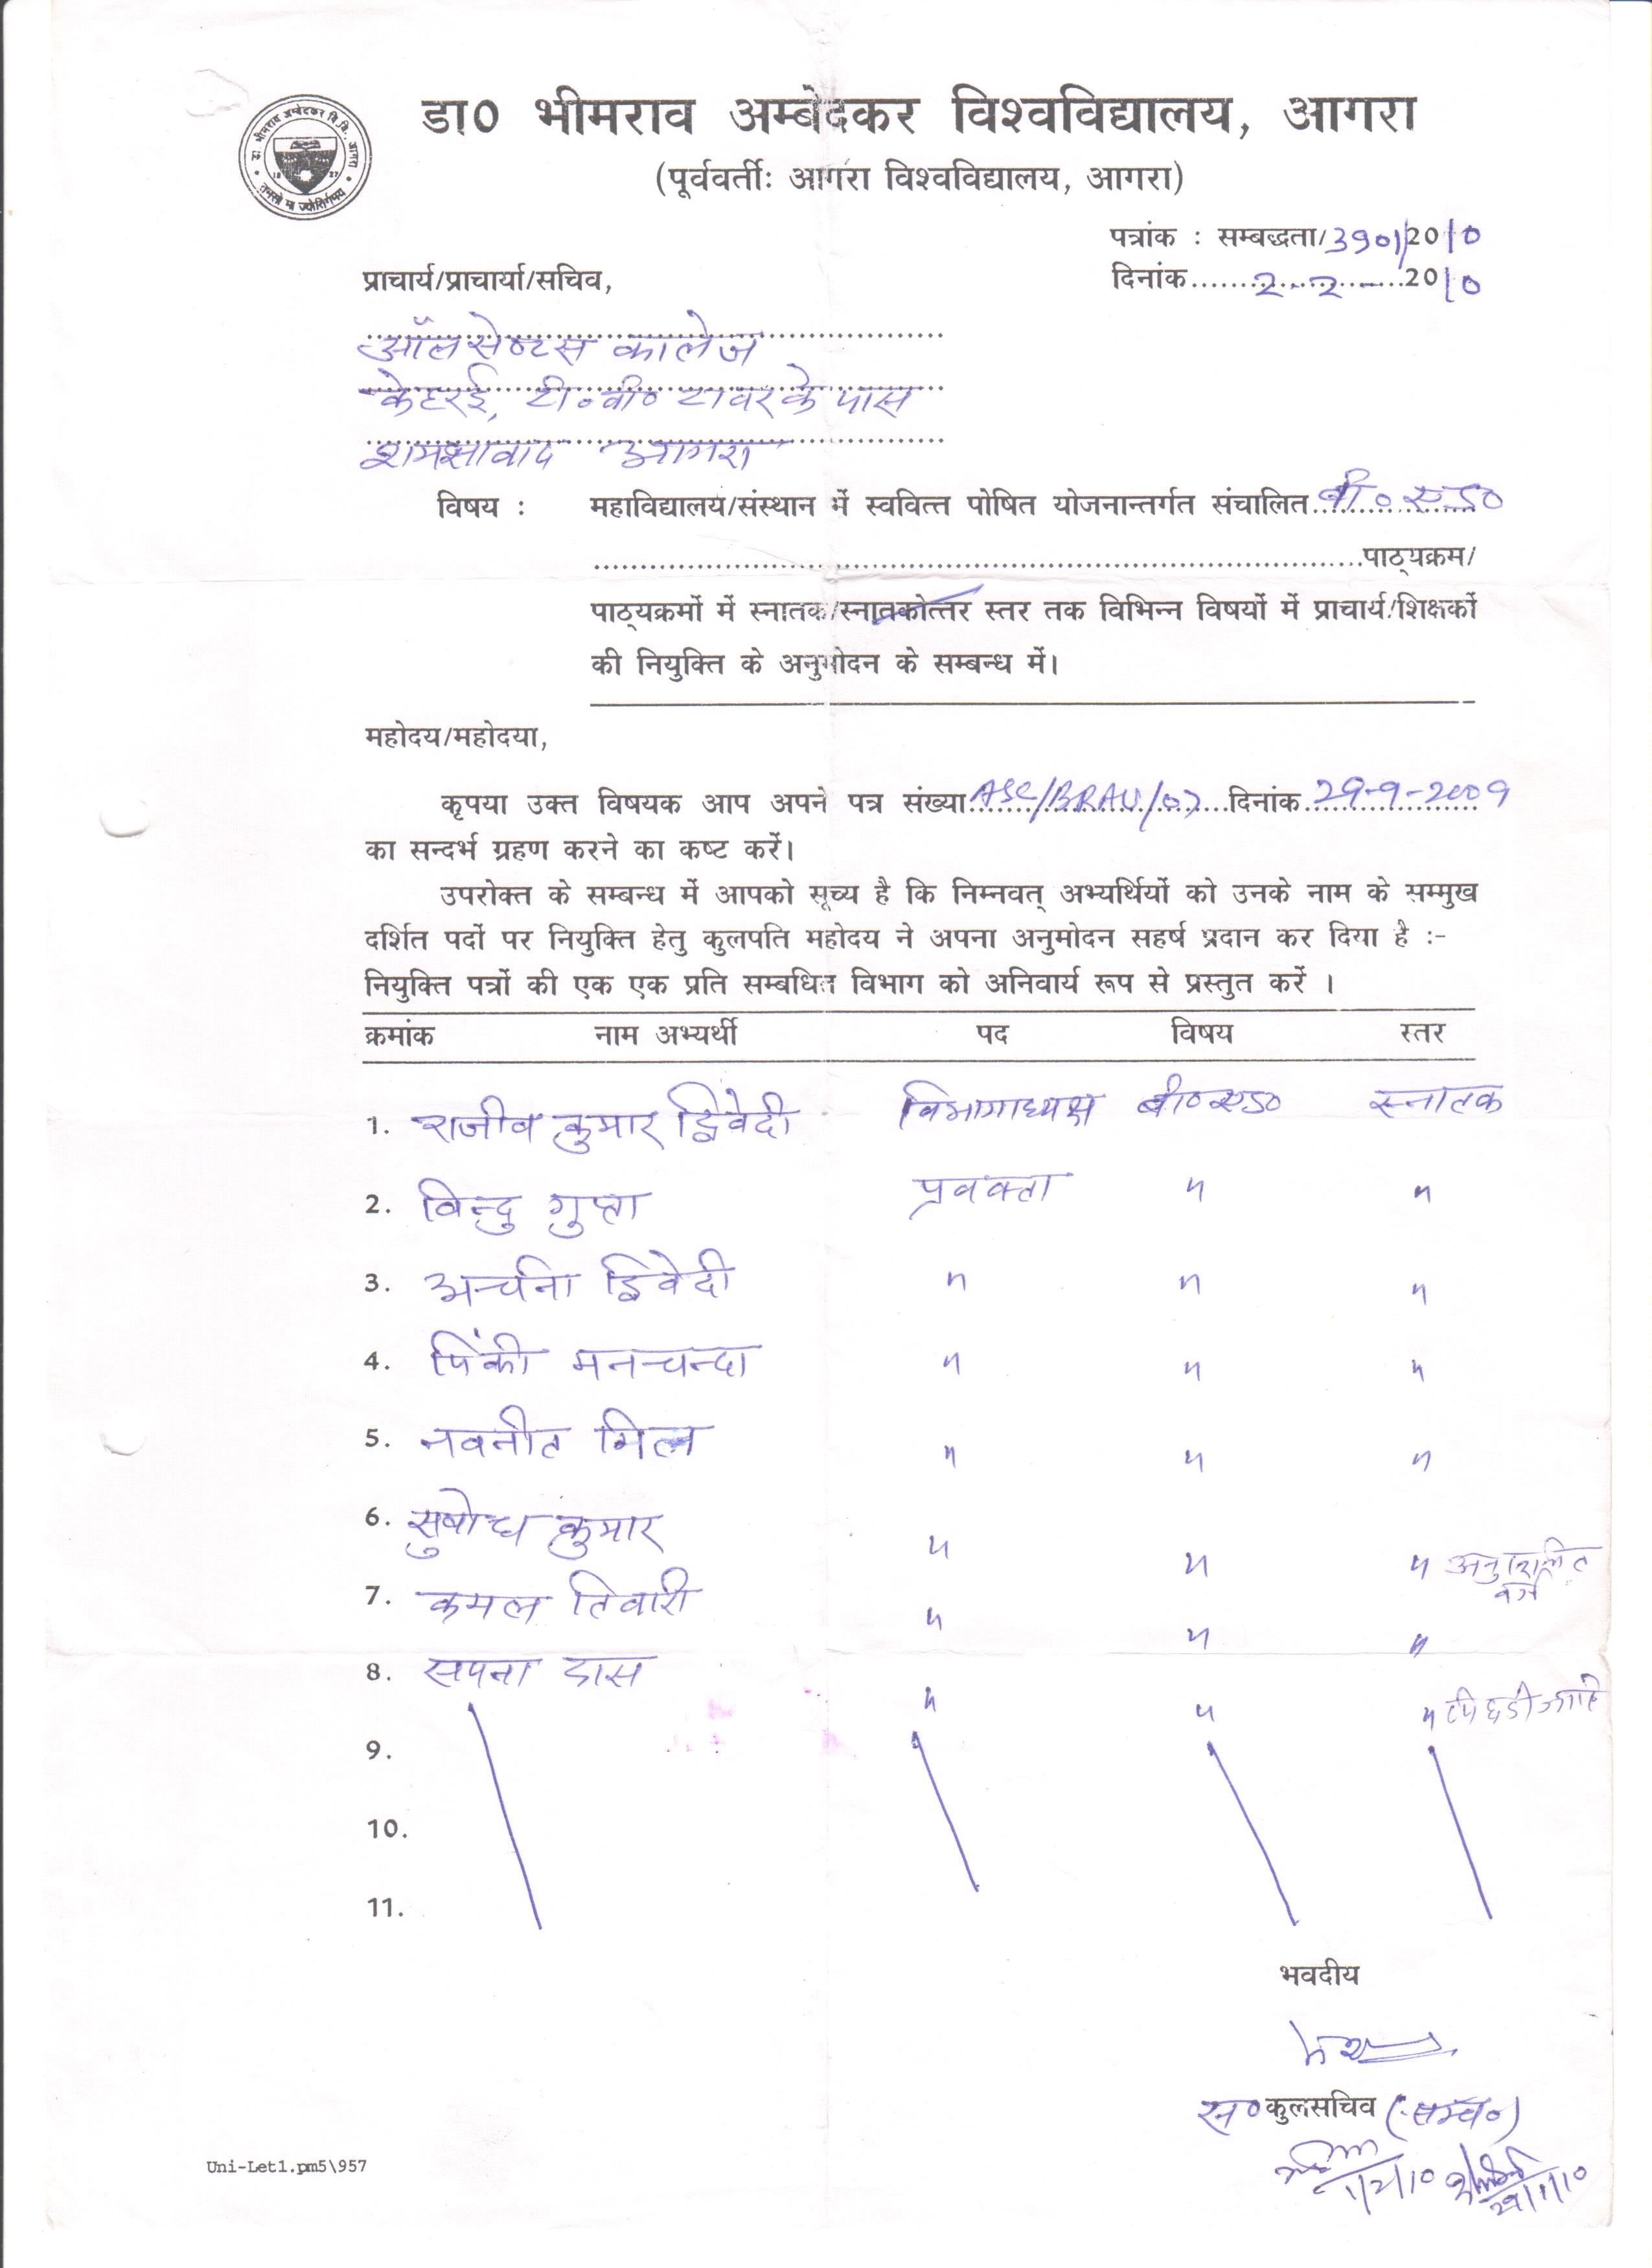 डा० भीमराव अम्बेदकर विश्वविद्यालय, आगरा
(पूर्ववर्तीः आगरा विश्वविद्यालय, आगरा)
डा. भीमराव अम्बेदकर वि.वि. आगरा
तमसो मा ज्योतिर्गमय
पत्रांक : सम्बद्धता/3901/2010
दिनांक......2-2-......2010
प्राचार्य/प्राचार्या/सचिव,
ऑल सेण्टस कालेज
केहरई, टी०वी० टावर के पास
शमसावाद आगरा
विषय : महाविद्यालय/संस्थान में स्ववित्त पोषित योजनान्तर्गत संचालित बी० एड०
....................पाठ्यक्रम/
पाठ्यक्रमों में स्नातक/स्नातकोत्तर स्तर तक विभिन्न विषयों में प्राचार्य/शिक्षकों
की नियुक्ति के अनुमोदन के सम्बन्ध में।
महोदय/महोदया,
कृपया उक्त विषयक आप अपने पत्र संख्या ASC/BRAU/07 दिनांक 29-9-2009
का सन्दर्भ ग्रहण करने का कष्ट करें।
उपरोक्त के सम्बन्ध में आपको सूच्य है कि निम्नवत् अभ्यर्थियों को उनके नाम के सम्मुख
दर्शित पदों पर नियुक्ति हेतु कुलपति महोदय ने अपना अनुमोदन सहर्ष प्रदान कर दिया है :-
नियुक्ति पत्रों की एक एक प्रति सम्बधित विभाग को अनिवार्य रूप से प्रस्तुत करें ।
क्रमांक नाम अभ्यर्थी पद विषय स्तर
1. राजीव कुमार द्विवेदी विभागाध्यक्ष बी०एड० स्नातक
2. विन्दु गुप्ता प्रवक्ता " "
3. अर्चना द्विवेदी " " "
4. पिंकी मनचन्दा " " "
5. नवनीत " " "
6. सुबोध कुमार " " "
7. कमल तिवारी " " "
8. सपना दास " " " पिछडी जाति
9.
10.
11.
भवदीय
स० कुलसचिव (सम्ब०)
1/2/10 29/1/10
Uni-Let1.pm5\957